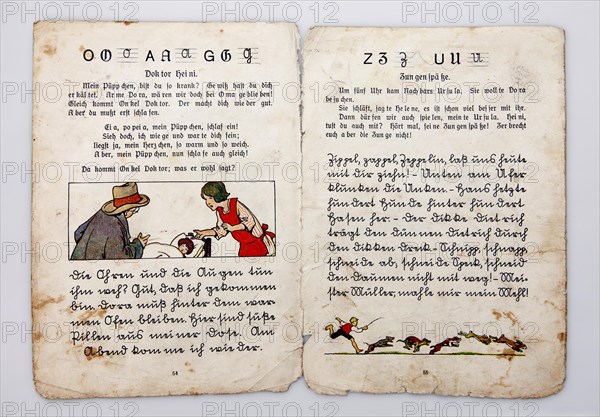 O O O A A A G G G
Doktor Heini.
Mein Püppchen, bist du so krank? Gewiß hast du dich
erkältet. Arme Dora, wären wir doch bei Oma geblieben!
Gleich kommt Onkel Doktor. Der macht dich wieder gut.
Aber du mußt erst schlafen.
Eia, popeia, mein Püppchen, schlaf ein!
Sieh doch, ich wiege und warte dich fein;
liegst ja, mein Herzchen, so warm und so weich.
Aber, mein Püppchen, nun schlafe auch gleich!
Da kommt Onkel Doktor; was er wohl sagt?
Die Ohren und die Augen tun
ihm weh? Gut, daß ich gekommen
bin. Dora muß hinter dem war-
men Ofen bleiben. Hier sind süße
Pillen aus meiner Dose. Am
Abend komme ich wieder.
54
Z Z Z U U U
Zungenspäße.
Um fünf Uhr kam Nachbars Ursula. Sie wollte Dora
besuchen.
Sie schläft, sagte Helene, es ist schon viel besser mit ihr.
Dann dürfen wir auch spielen, meinte Ursula. Heini,
tust du auch mit? Hört mal, feine Zungenspäße! Zerbrecht
euch aber die Zunge nicht!
Zippel, zappel, Zeppelin, laß uns heute
mit dir ziehn! - Unten am Ufer
klunken die Unken. - Hans hetzte
hundert Hunde hinter hundert
Hasen her. - Der dikke Dietrich
trägt den dünnen Dietrich durch
den dikken Drek. - Schnipp, schnapp,
schneide ab, schneide Speck, schneid
den Daumen nicht mit weg! - Mei-
ster Müller, mahle mir mein Mehl!
55